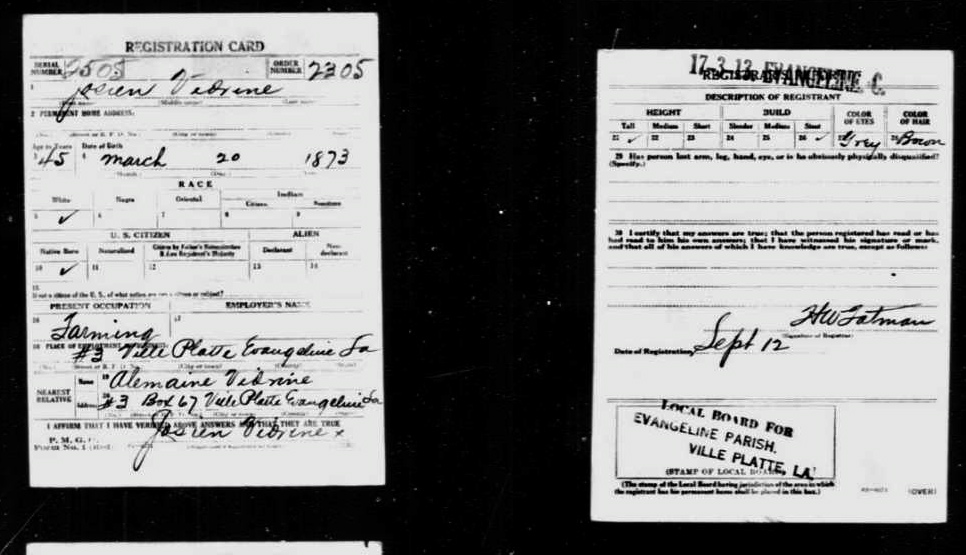 REGISTRATION CARD
SERIAL NUMBER 2505 ORDER NUMBER 2305
1 Josien Vidrine
(Middle name) (Last name)
2 PERMANENT HOME ADDRESS:
(No.) (Street or R. F. D. No.) (City or town) (County) (State)
Age in Years Date of Birth
3 45 4 March 20 1873
(Month) (Day) (Year)
RACE
White Negro Oriental Indian
Citizen Noncitizen
5 ✓ 6 7 8 9
U. S. CITIZEN ALIEN
Native Born Naturalized Citizen by Father's Naturalization Before Registrant's Majority Declarant Non-declarant
10 ✓ 11 12 13 14
15
If not a citizen of the U. S., of what nation are you a citizen or subject?
PRESENT OCCUPATION EMPLOYER'S NAME
16 Farming 17
18 PLACE OF EMPLOYMENT OR BUSINESS:
#3 Ville Platte Evangeline La
(No.) (Street or R. F. D. No.) (City or town) (County) (State)
NEAREST RELATIVE Name 19 Alemaine Vidrine
Address 20 #3 Box 67 Ville Platte Evangeline La
(No.) (City or town) (County) (State)
I AFFIRM THAT I HAVE VERIFIED ABOVE ANSWERS AND THAT THEY ARE TRUE
P. M. G. O.
Form No. 1 (Red) Josien Vidrine x
17-3-12 EVANGELINE C.
REGISTRAR'S REPORT
DESCRIPTION OF REGISTRANT
HEIGHT BUILD COLOR OF EYES COLOR OF HAIR
Tall Medium Short Slender Medium Stout
21 ✓ 22 23 24 25 26 ✓ 27 Grey 28 Brown
29 Has person lost arm, leg, hand, eye, or is he obviously physically disqualified?
(Specify.)
30 I certify that my answers are true; that the person registered has read or has
had read to him his own answers; that I have witnessed his signature or mark,
and that all of his answers of which I have knowledge are true, except as follows:
H W Fatman
(Signature of Registrar)
Date of Registration Sept 12
LOCAL BOARD FOR
EVANGELINE PARISH,
VILLE PLATTE, LA.
(STAMP OF LOCAL BOARD)
(The stamp of the Local Board having jurisdiction of the area in which
the registrant has his permanent home shall be placed in this box.)
(OVER)